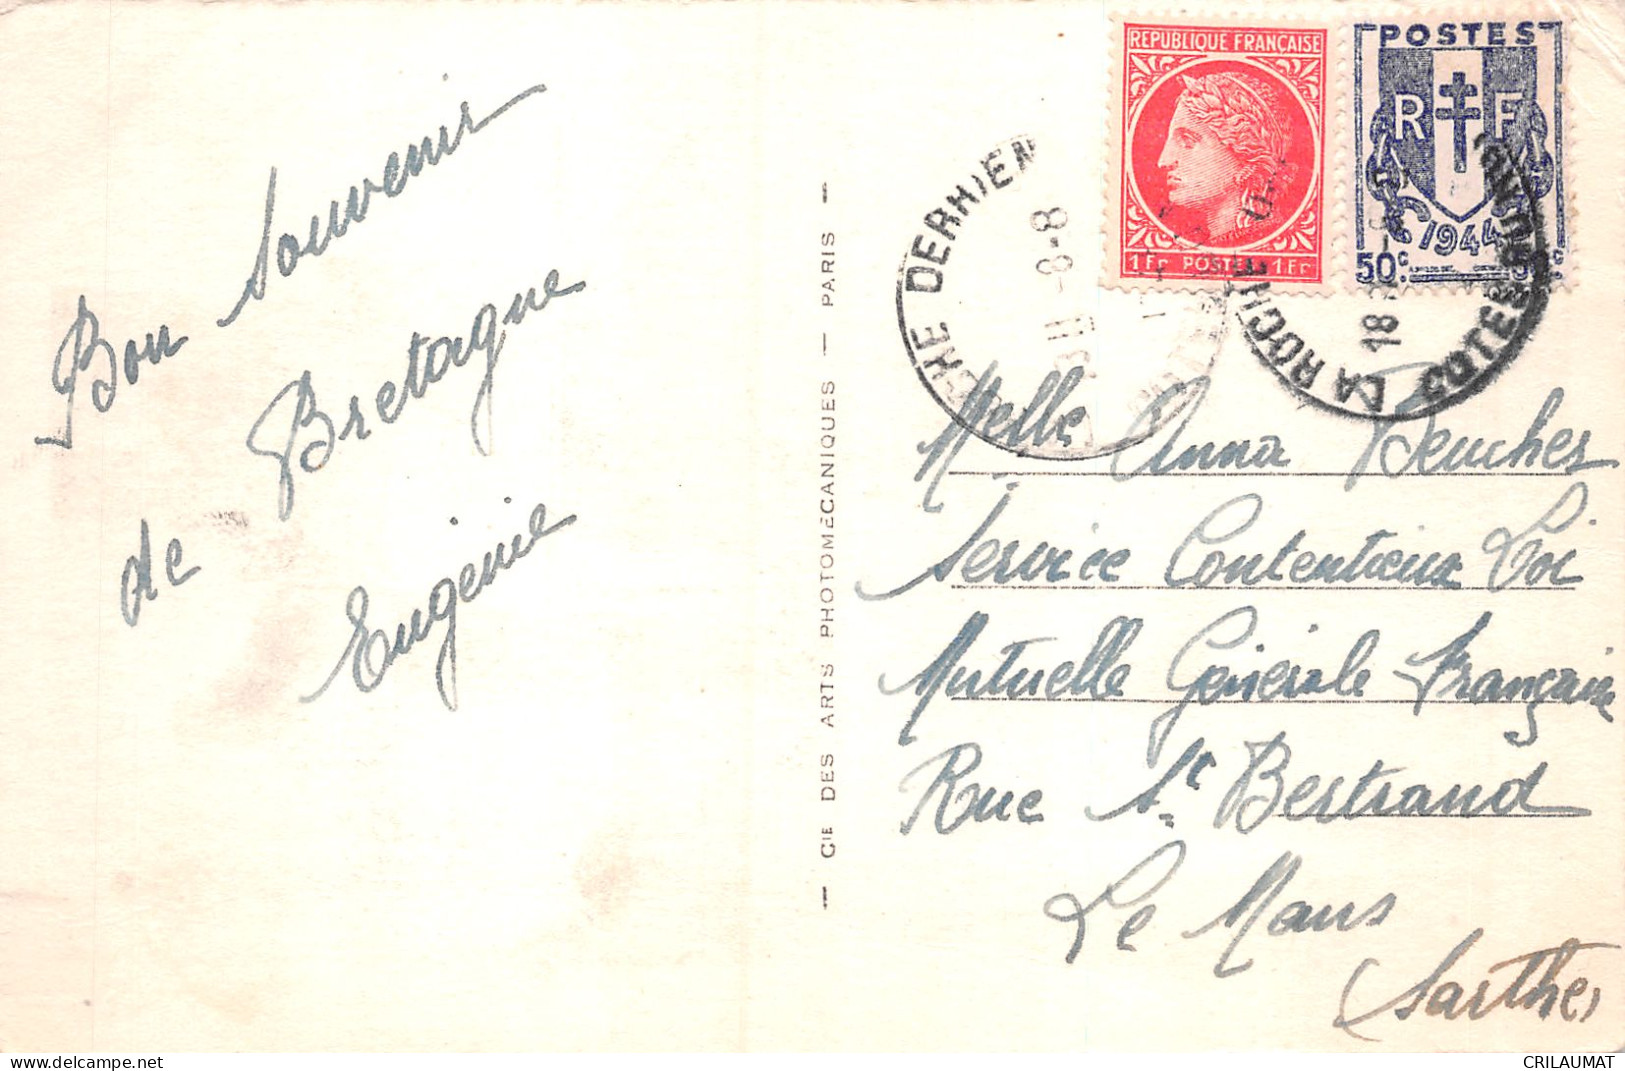 Bon Souvenir
de Bretagne
Eugénie
— CIE DES ARTS PHOTOMÉCANIQUES — PARIS —
REPUBLIQUE FRANÇAISE
1 Fr POSTES 1 Fr
POSTES
R F
1944
50c
DERRIEN
8-8
LA ROCHE
18
COTES DU NORD
Melle Anna
Service Contentieux Loi
Mutuelle Générale Française
Rue St Bertrand
Le Mans
(Sarthe)
CRILAUMAT